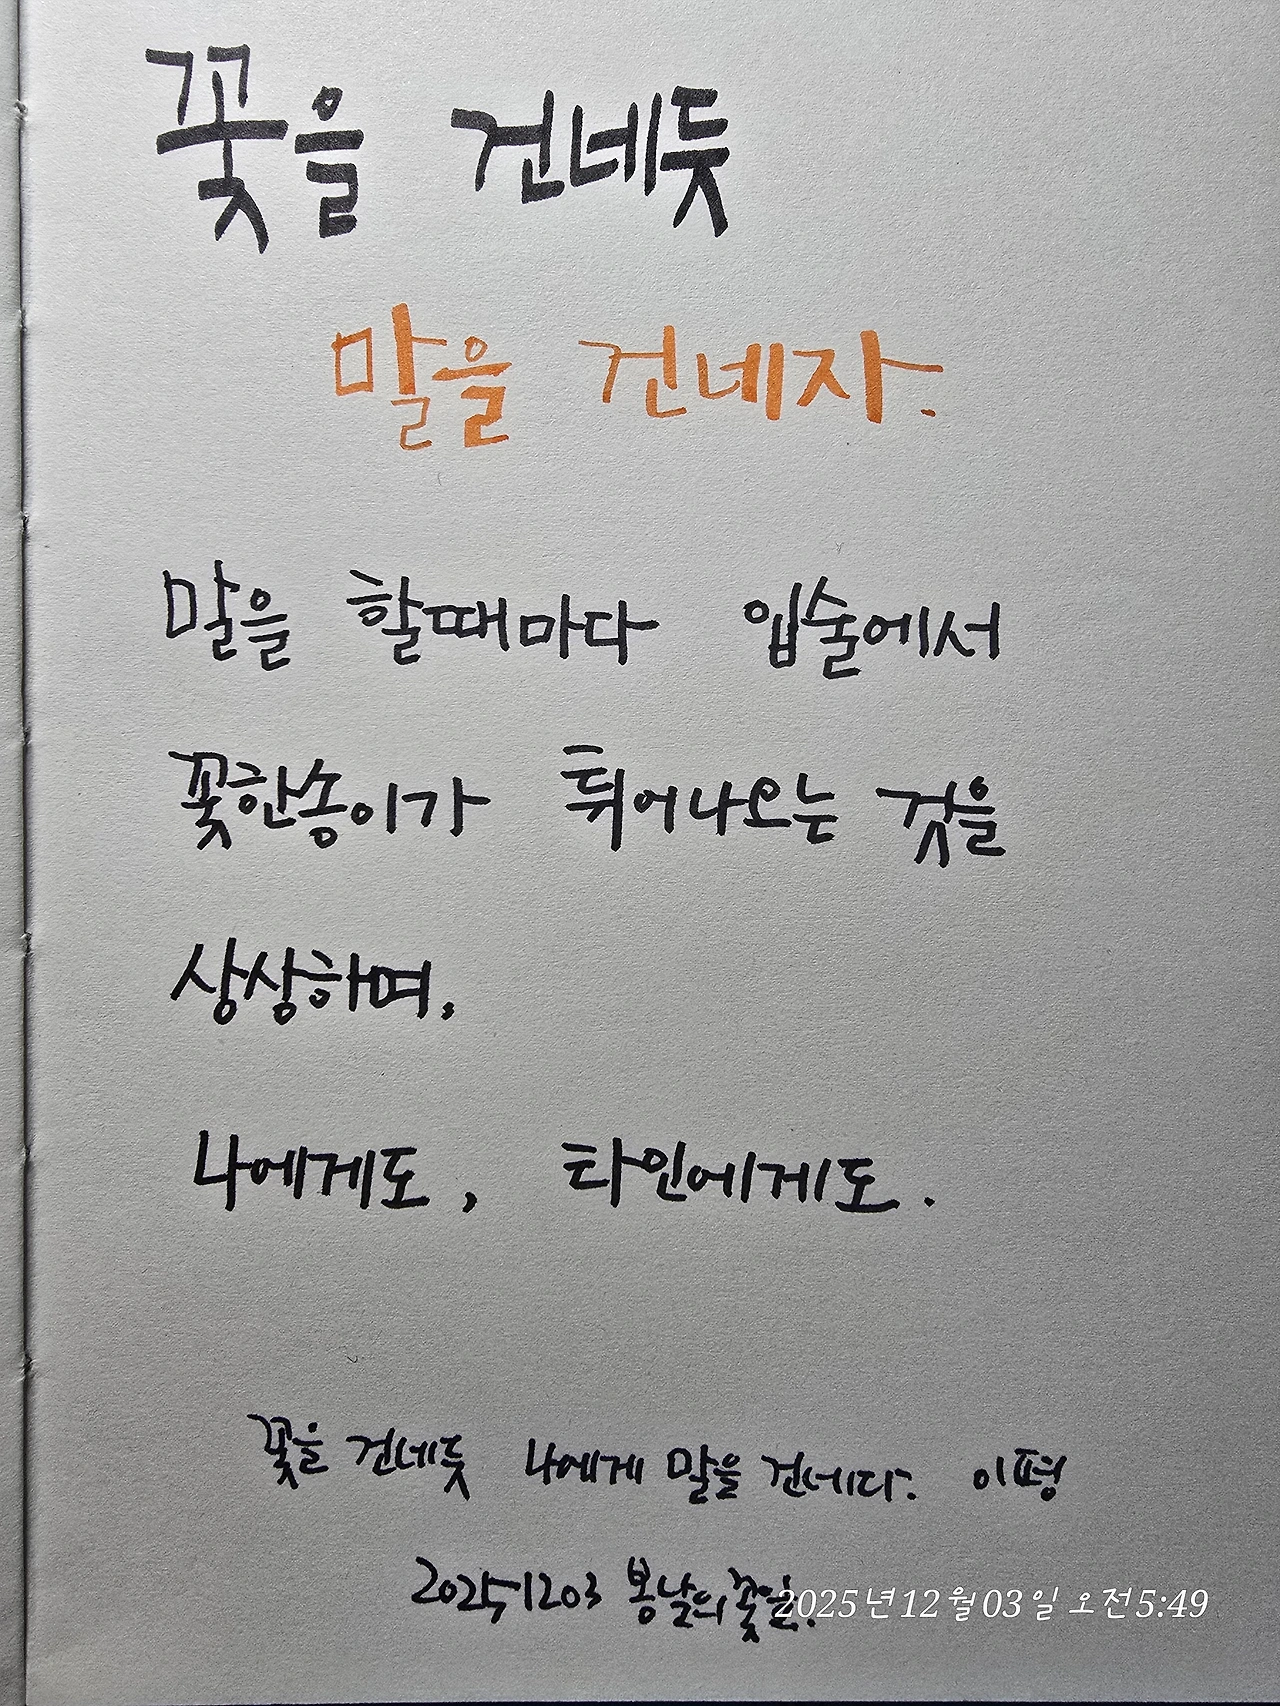 꽃을 건네듯
말을 건네자.
말을 할때마다 입술에서
꽃한송이가 튀어나오는 것을
상상하며,
나에게도, 타인에게도.
꽃을 건네듯 나에게 말을 건네다. 이평
20251203 봄날의꽃잎.
2025년12월03일 오전5:49